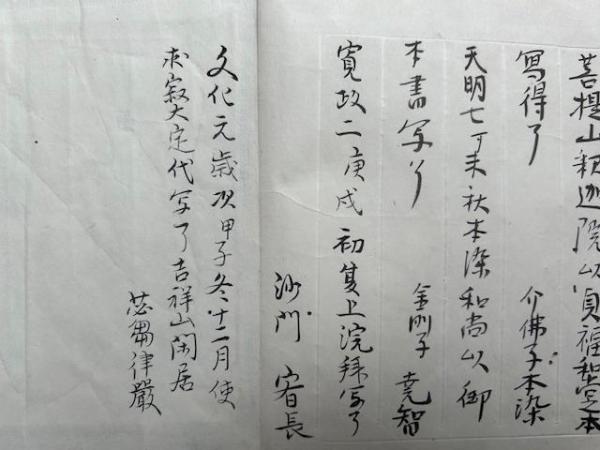 菩提山釈迦院以貞福和尚本
写得了
介佛子本染
天明七丁未秋本染和尚以御
本書写了
金剛子 尭智
寛政二庚戌初夏上浣拜写了
沙門 宥長
文化元歳次甲子冬十二月使
求寂大定代写了吉祥山閑居
苾蒭律嚴